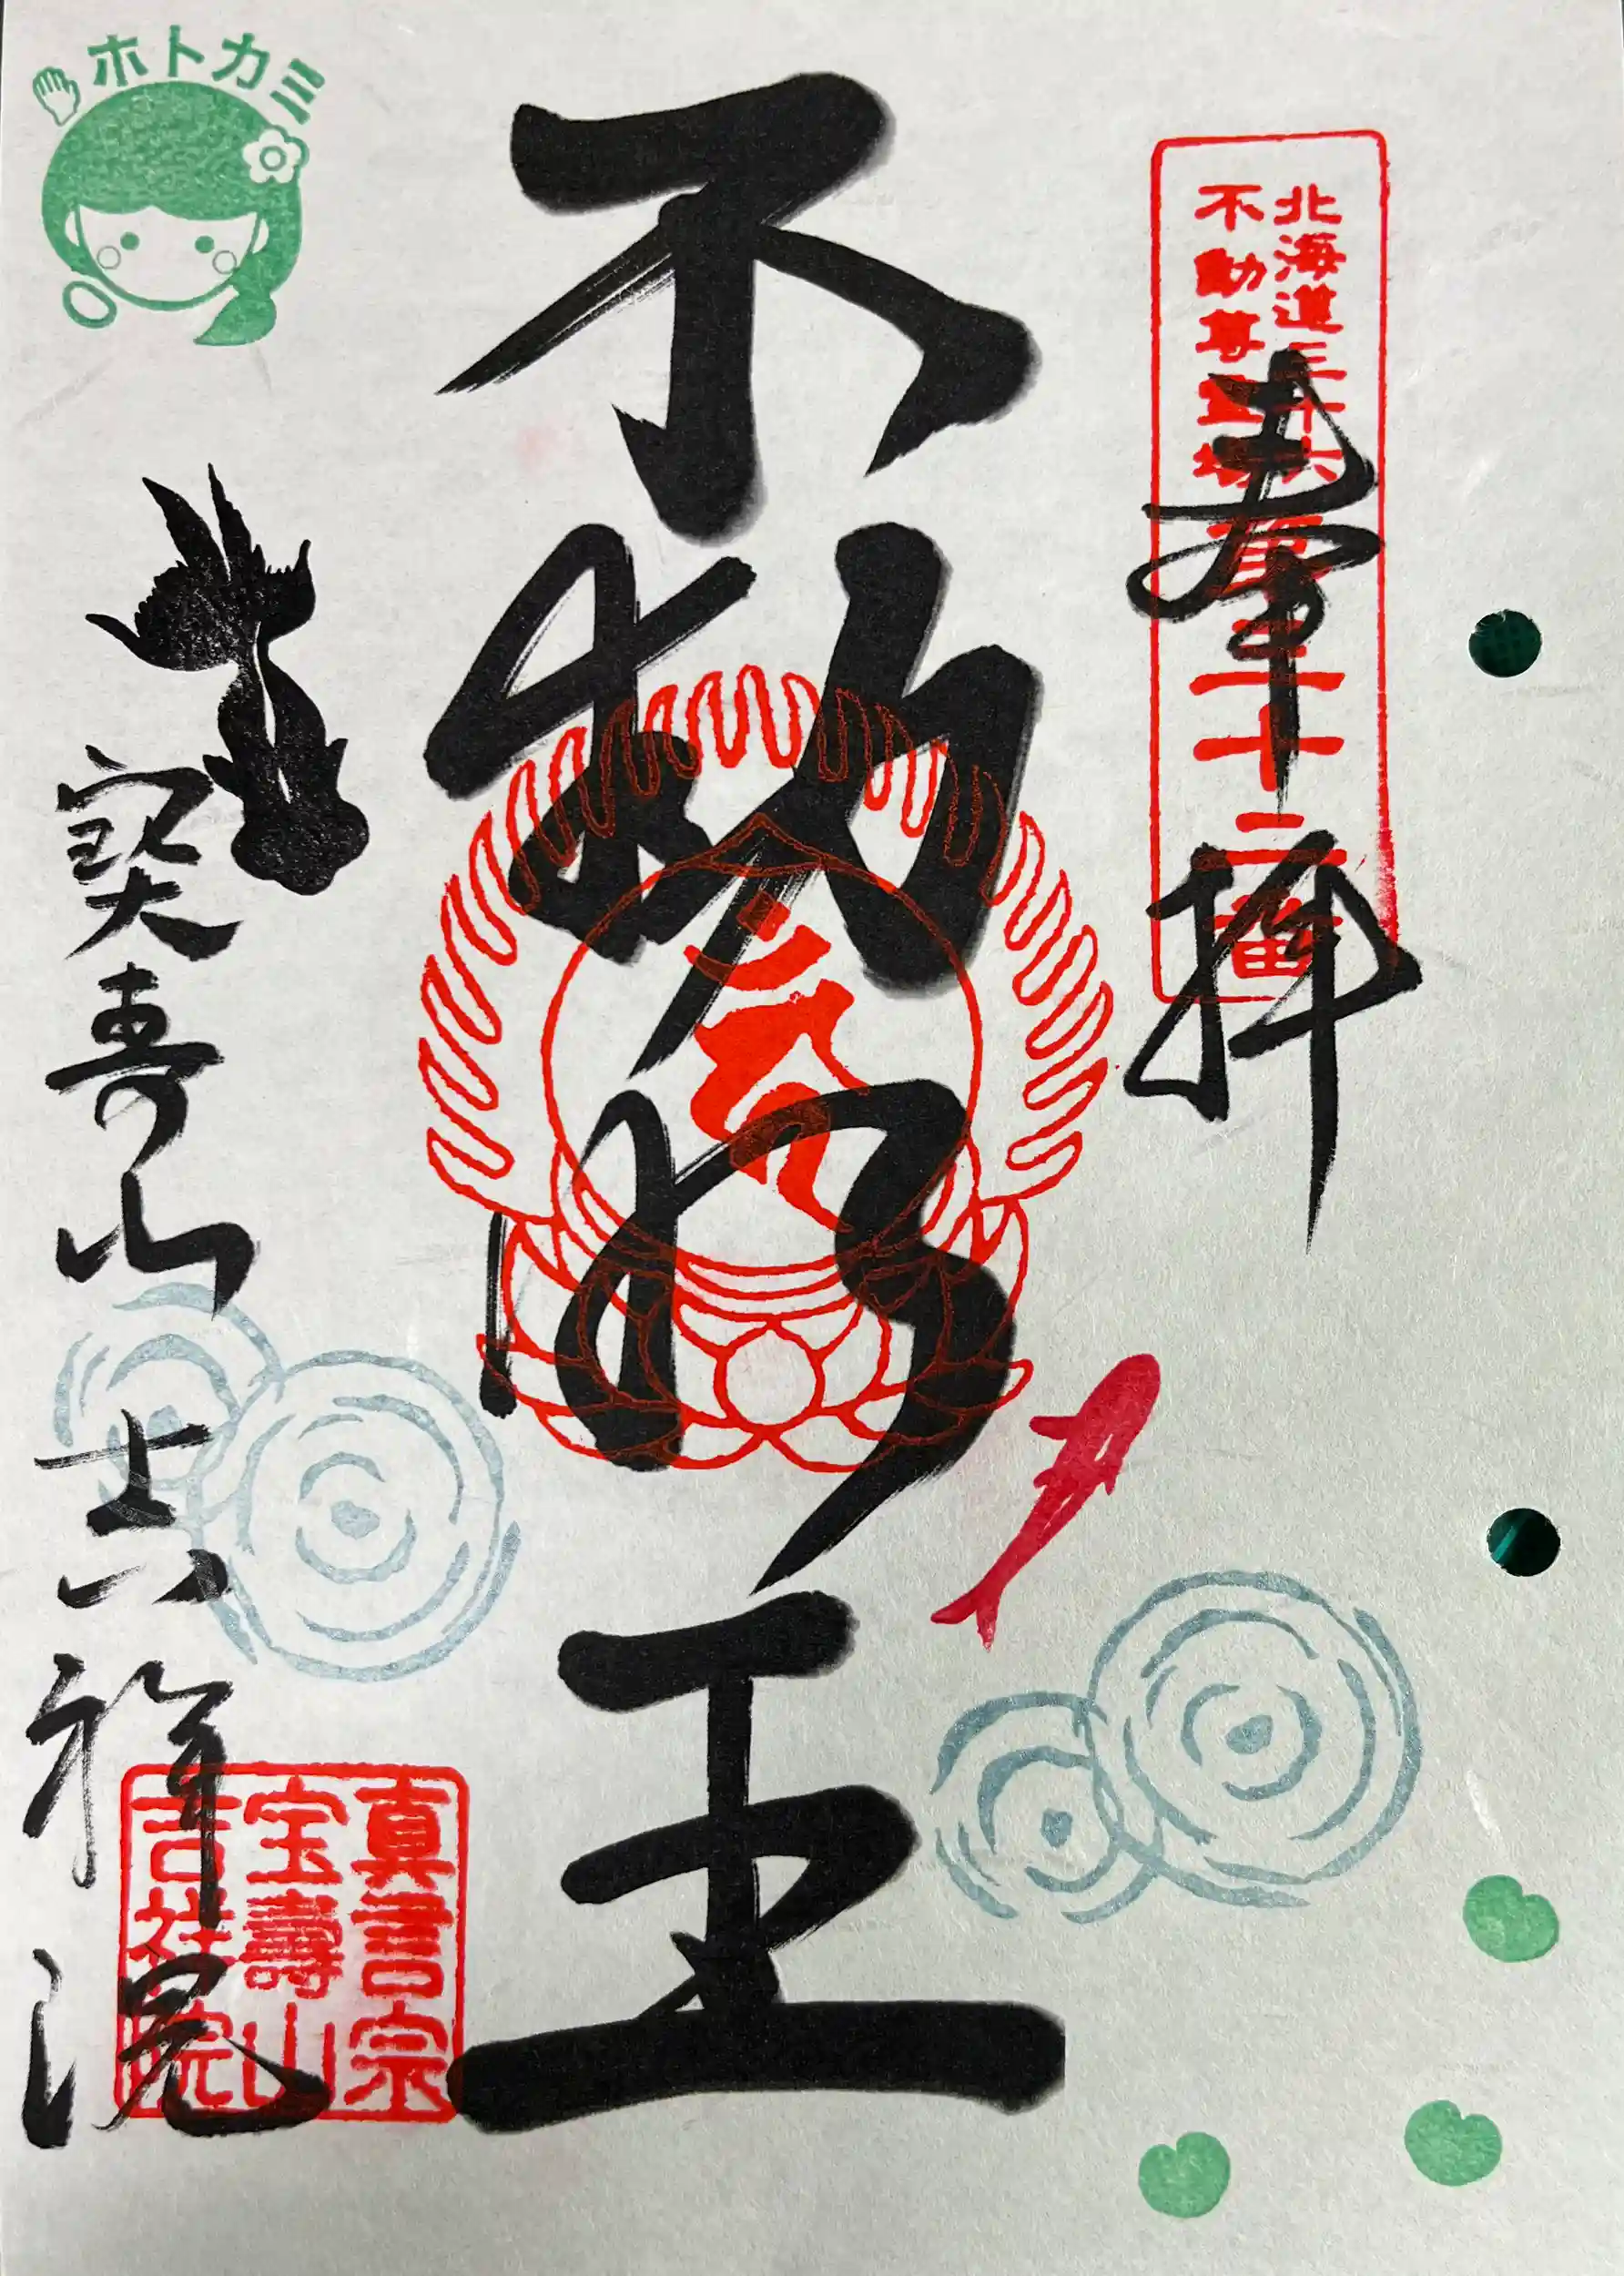 ホトカミ
北海道三十六
不動尊霊場
第三十二番
奉拝
不動明王
寳壽山
吉祥院
真言宗
宝壽山
吉祥院